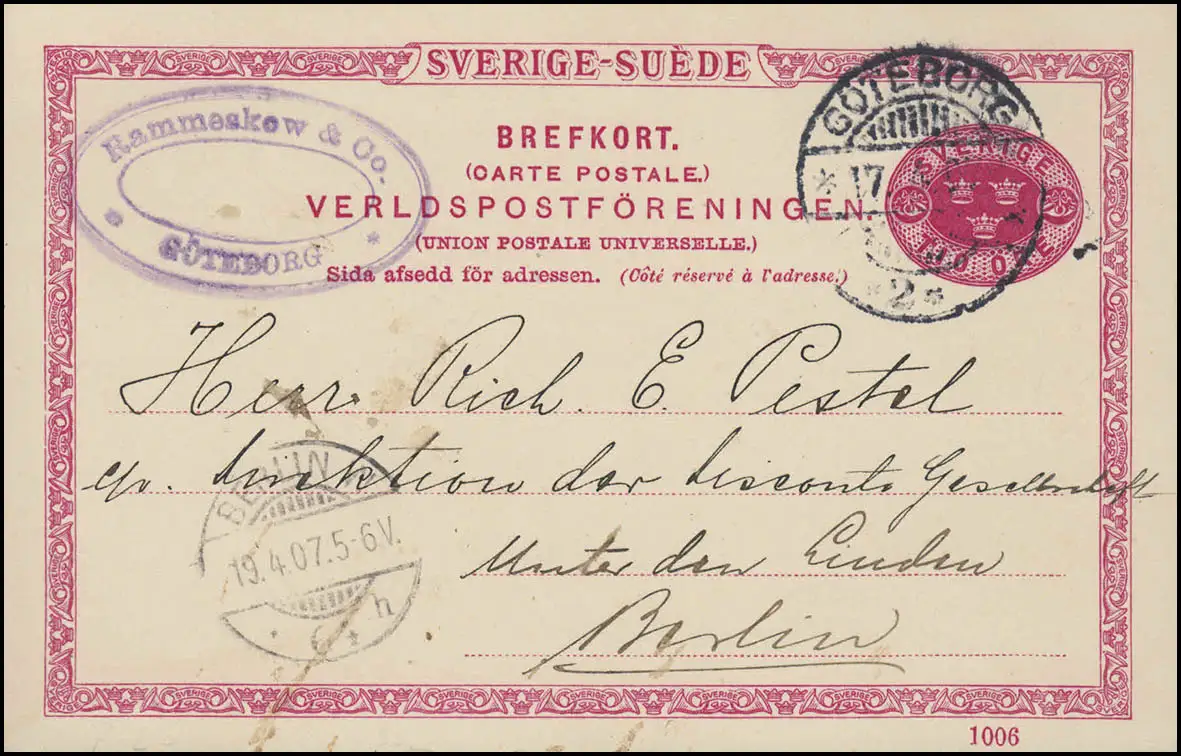 SVERIGE-SUÈDE
BREFKORT.
(CARTE POSTALE.)
VERLDSPOSTFÖRENINGEN.
(UNION POSTALE UNIVERSELLE.)
Sida afsedd för adressen. (Côté réservé à l'adresse.)
Rammeskow & Co.
GÖTEBORG
GÖTEBORG
17
2
SVERIGE
TIO ÖRE
Herr Rich. E. Pestel
c/o. Direktion der Disconto Gesellschaft
Unter den Linden
Berlin
BERLIN
19.4.07.5-6V.
h
1006